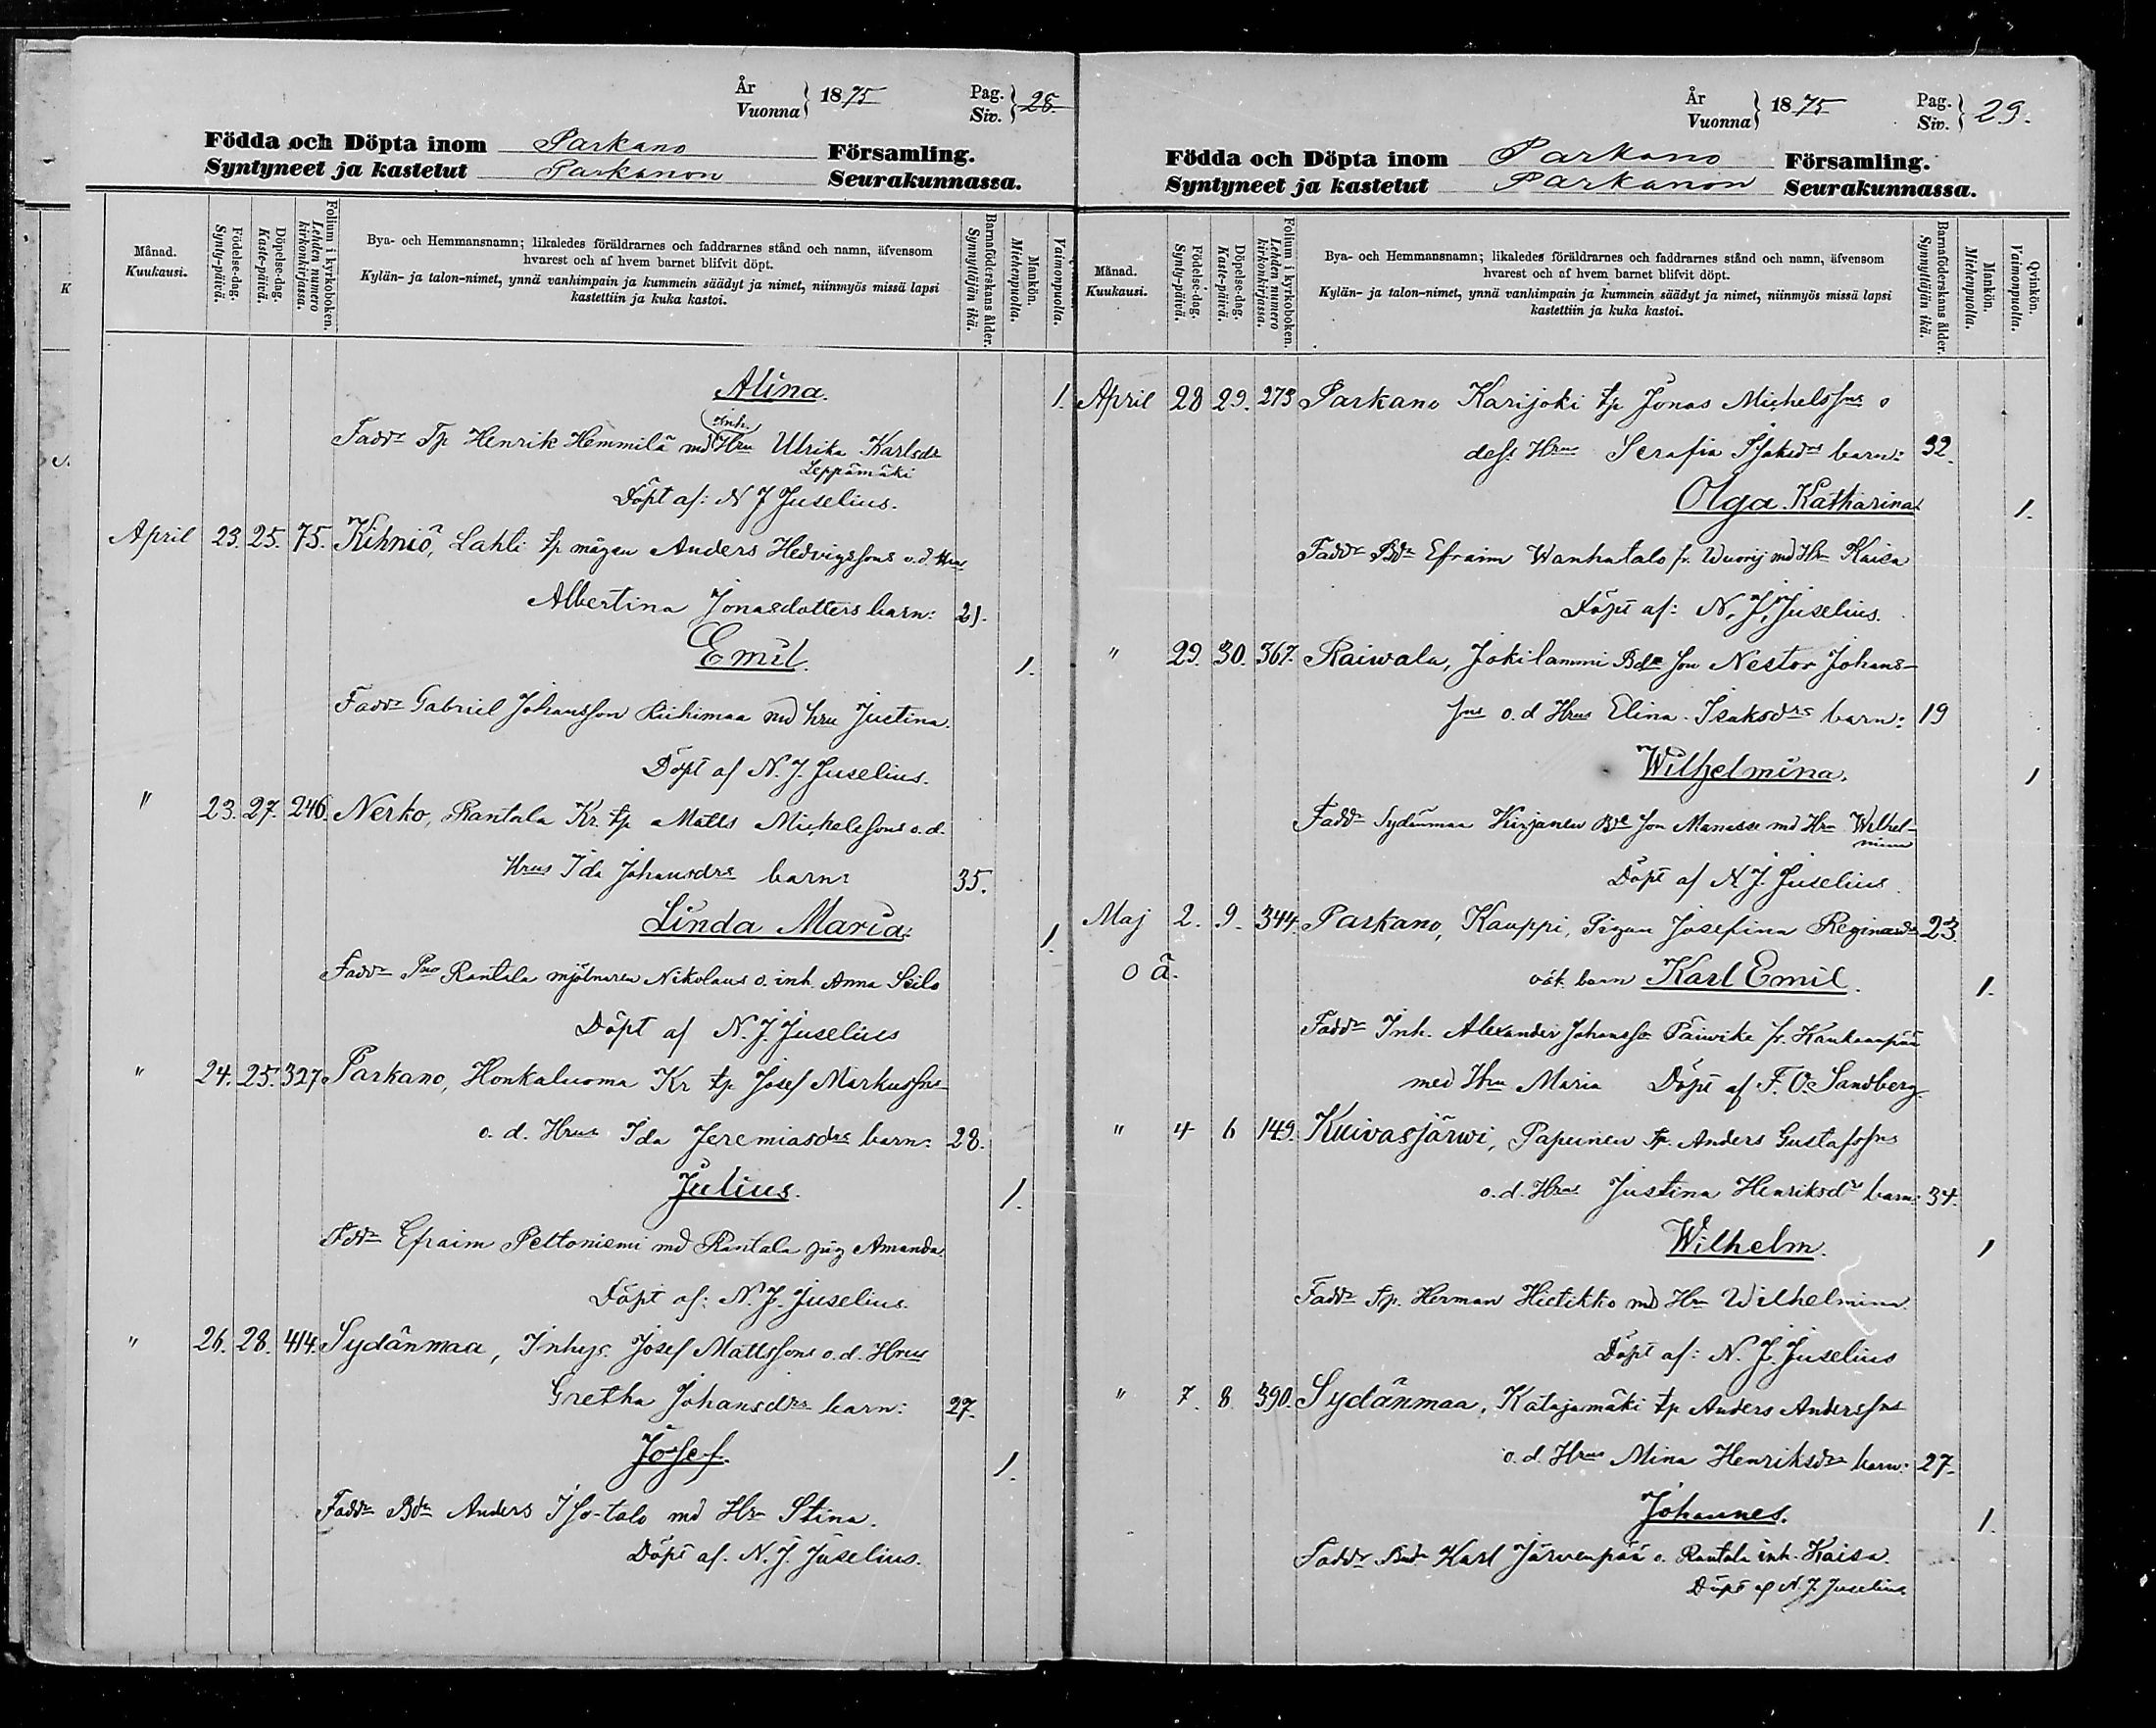 År
Vuonna } 1875
Pag.
Siv. } 28
Födda och Döpta inom Parkano Församling.
Syntyneet ja kastetut Parkanon Seurakunnassa.
Månad.
Kuukausi.
Födelse-dag.
Synty-päivä.
Döpelse-dag.
Kaste-päivä.
Folium i kyrkoboken.
Lehden numero
kirkonkirjassa.
Bya- och Hemmansnamn; likaledes föräldrarnes och faddrarnes stånd och namn, äfvensom
hvarest och af hvem barnet blifvit döpt.
Kylän- ja talon-nimet, ynnä vanhimpain ja kummein säädyt ja nimet, niinmyös missä lapsi
kastettiin ja kuka kastoi.
Barnaföderskans ålder.
Synnyttäjän ikä.
Mankön.
Miehenpuolia.
Vaimonpuolia.
Alina. 1.
Inh.
Faddr Tp Henrik Hemmilä md Hru Ulrika Karlsdr
Leppämäki
Döpt af: N J Juselius.
April 23. 25. 75. Kihniö, Lahli tp mågen Anders Hedvigssons o.d. Hrus
Albertina Jonasdotters barn: 21.
Emil. 1.
Faddr Gabriel Johansson Riihimaa md hru Justina.
Döpt af N. J. Juselius.
" 23. 27. 246. Nerko, Rantala Kr. tp Matts Michelssons o.d.
Hrus Ida Johansdrs barn: 35.
Linda Maria. 1.
Faddr Rantala mjölnaren Nikolaus o. inh. Anna Seilo
Döpt af N. J. Juselius
" 24. 25. 327. Parkano, Honkaluoma Kr tp Josef Markussns
o. d. Hrus Ida Jeremiasdrs barn: 28.
Julius. 1.
Fddr Efraim Peltoniemi md Rantala pig Amanda.
Döpt af: N. J. Juselius.
" 26. 28. 414. Sydänmaa, Inhys. Josef Mattssons o.d. Hrus
Gretha Johansdrs barn: 27.
Josef. 1.
Faddr Bdn Anders Iso-talo md Hru Stina.
Döpt af. N. J. Juselius.
År
Vuonna } 1875
Pag.
Siv. } 29.
Födda och Döpta inom Parkano Församling.
Syntyneet ja kastetut Parkanon Seurakunnassa.
Månad.
Kuukausi.
Födelse-dag.
Synty-päivä.
Döpelse-dag.
Kaste-päivä.
Folium i kyrkoboken.
Lehden numero
kirkonkirjassa.
Bya- och Hemmansnamn; likaledes föräldrarnes och faddrarnes stånd och namn, äfvensom
hvarest och af hvem barnet blifvit döpt.
Kylän- ja talon-nimet, ynnä vanhimpain ja kummein säädyt ja nimet, niinmyös missä lapsi
kastettiin ja kuka kastoi.
Barnaföderskans ålder.
Synnyttäjän ikä.
Mankön.
Miehenpuolia.
Qvinkön.
Vaimonpuolia.
April 28 29. 273 Parkano Karijoki tp Jonas Michelssns o
dess Hrus Serafia Isaksdrs barn: 32.
Olga Katharina 1.
Faddr Bdn Efraim Wanhatalo fr. Wuorij md Hru Kaisa
Döpt af: N. J. Juselius.
" 29. 30. 367. Raiwala, Jokilammi Bde son Nestor Johans-
sns o.d Hrus Elina Isaksdrs barn: 19
Wilhelmina. 1
Faddr Sydänmaa Kirjanen Bde son Manasse md Hru Wilhel-
mina
Döpt af N J. Juselius.
Maj 2. 9. 344. Parkano, Kauppi, Pigan Josefina Reginasdr 23.
o ä. oäk. barn Karl Emil. 1.
Faddr Inh. Alexander Johansson Päiwike fr. Kankaanpää
med Hru Maria Döpt af F. O. Sandberg.
" 4 6 149. Kuivasjärwi, Papunen tp. Anders Gustafssns
o.d. Hrus Justina Henriksdr barn: 34.
Wilhelm. 1
Faddr tp. Herman Hietikko md Hru Wilhelmina.
Döpt af: N. J. Juselius
" 7. 8 390. Sydänmaa, Katajamäki tp Anders Anderssns
o.d. Hrus Mina Henriksdrs barn: 27.
Johannes. 1.
Faddr Bdn Karl Järvenpää o. Rantala inh. Kaisa.
Döpt af N. J. Juselius